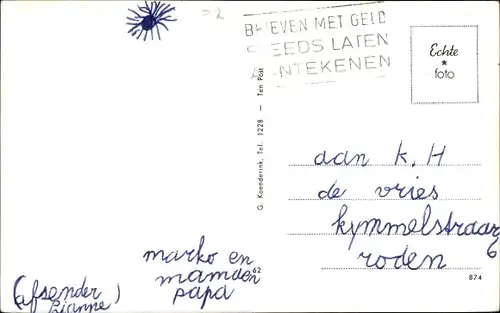 =2
BRIEVEN MET GELD
STEEDS LATEN
AANTEKENEN
Echte
*
foto
G. Koenderink, Tel. 1228 — Ten Post
aan K. H
de vries
kymmelstraat
6
roden
marko en
mamaen
papa
(afsender
Lianne)
62
874